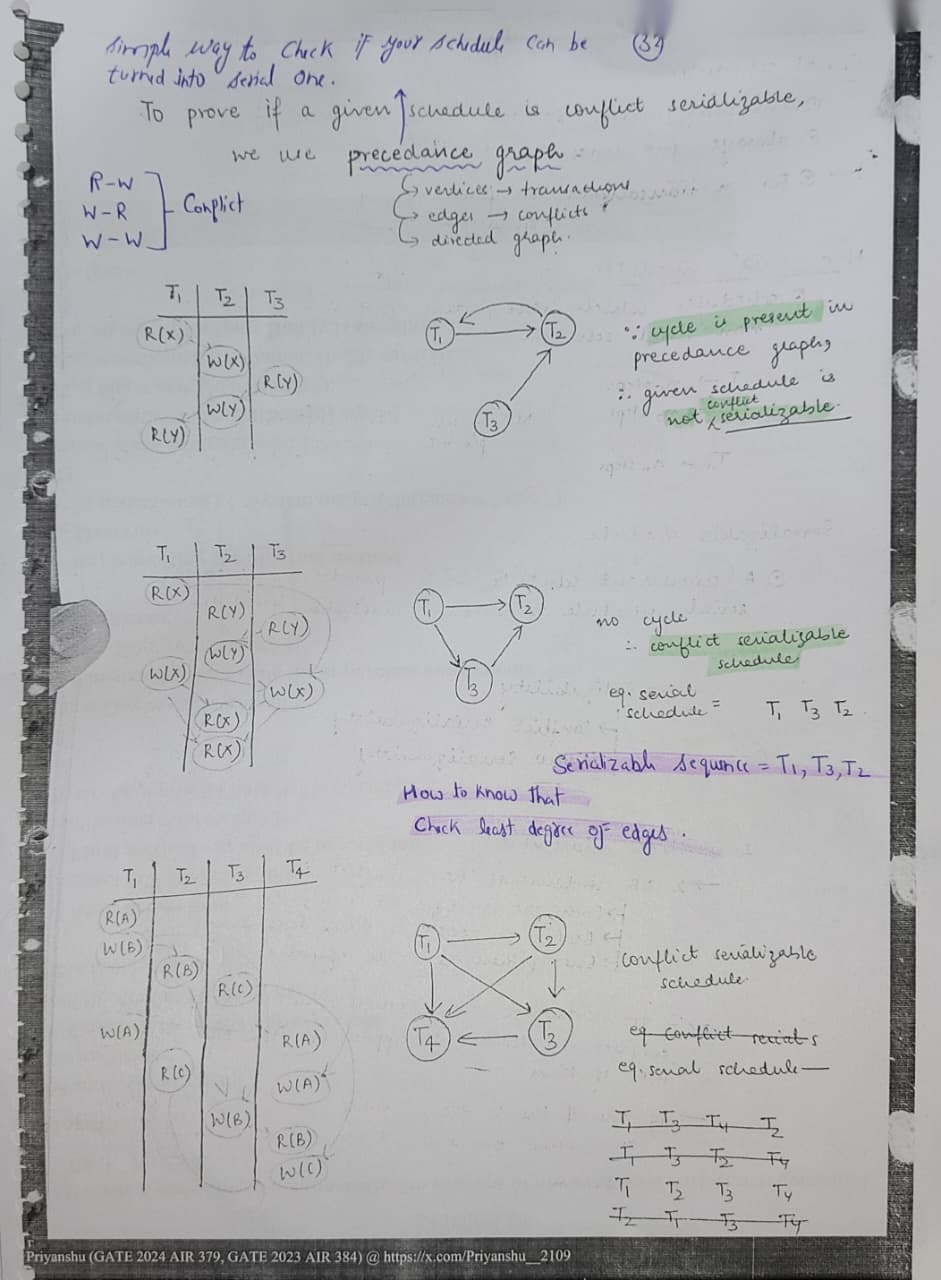 Simple way to Check if your schedule can be (32)
turned into serial one.
To prove if a given schedule is conflict serializable,
we use precedance graph
R-W
W-R
W-W
Conflict
vertices → transactions
edges → conflicts
directed graph.
T1 T2 T3
R(X)
W(X)
R(Y)
W(Y)
R(Y)
T1 T2
T3
∵ cycle is present in
precedance graph,
∴ given schedule is
not conflict serializable.
T1 T2 T3
R(X)
R(Y)
R(Y)
W(Y)
W(X)
W(X)
R(X)
R(X)
T1 T2
T3
no cycle
∴ conflict serializable
schedule
eq. serial
schedule = T1 T3 T2
Serializable sequence = T1, T3, T2
How to know that
Check least degree of edges.
T1 T2 T3 T4
R(A)
W(B)
R(B)
R(C)
W(A)
R(A)
R(C)
W(A)
W(B)
R(B)
W(C)
T1 T2
T4 T3
conflict serializable
schedule
eq conflict serial s
eq. serial schedule —
T1 T3 T4 T2
T1 T3 T2 T4
T1 T2 T3 T4
T2 T1 T3 T4
Priyanshu (GATE 2024 AIR 379, GATE 2023 AIR 384) @ https://x.com/Priyanshu__2109